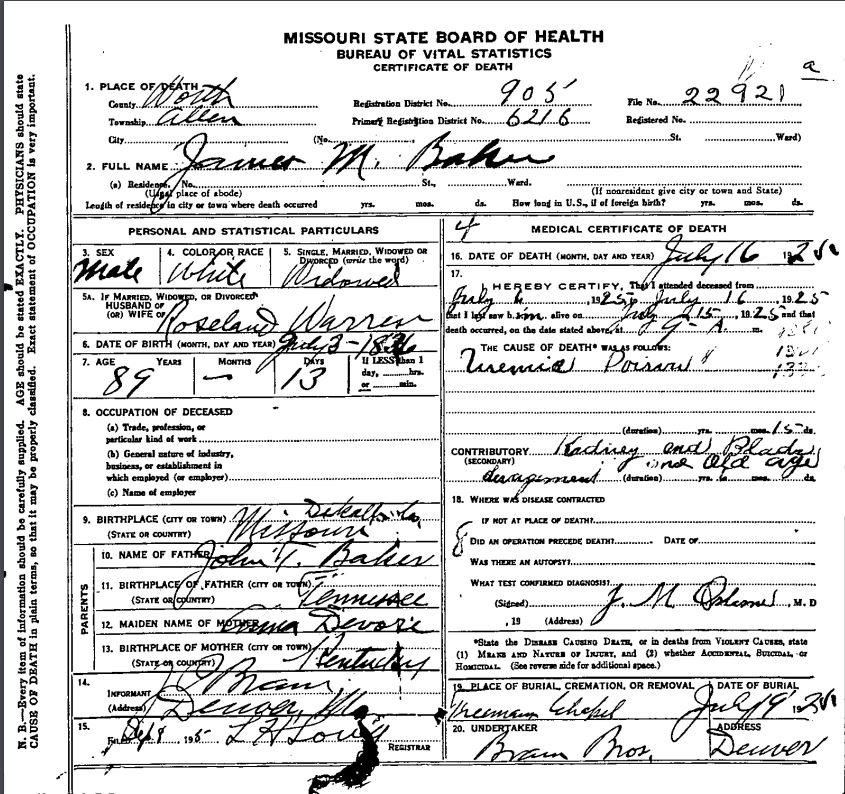 MISSOURI STATE BOARD OF HEALTH
BUREAU OF VITAL STATISTICS
CERTIFICATE OF DEATH
a
1. PLACE OF DEATH
County Worth Registration District No. 905 File No. 22921
Township Allen Primary Registration District No. 6216 Registered No.
City (No. St. Ward)
2. FULL NAME James M. Baker
(a) Residence, No. St., Ward.
(Usual place of abode) (If nonresident give city or town and State)
Length of residence in city or town where death occurred yrs. mos. ds. How long in U.S., if of foreign birth? yrs. mos. ds.
PERSONAL AND STATISTICAL PARTICULARS
3. SEX 4. COLOR OR RACE 5. SINGLE, MARRIED, WIDOWED OR
DIVORCED (write the word)
Male White Widowed
5A. IF MARRIED, WIDOWED, OR DIVORCED
HUSBAND OF
(OR) WIFE OF Roseland Warren
6. DATE OF BIRTH (MONTH, DAY AND YEAR) July 3-1836
7. AGE YEARS MONTHS DAYS If LESS than 1
day, hrs.
or min.
89 — 13
8. OCCUPATION OF DECEASED
(a) Trade, profession, or
particular kind of work
(b) General nature of industry,
business, or establishment in
which employed (or employer)
(c) Name of employer
9. BIRTHPLACE (CITY OR TOWN) Dekalb Co,
(STATE OR COUNTRY) Missouri
PARENTS
10. NAME OF FATHER John T. Baker
11. BIRTHPLACE OF FATHER (CITY OR TOWN)
(STATE OR COUNTRY) Tennessee
12. MAIDEN NAME OF MOTHER Emma Devore
13. BIRTHPLACE OF MOTHER (CITY OR TOWN)
(STATE OR COUNTRY) Kentucky
14.
INFORMANT Bram
(Address) Denver, Mo
15.
FILED Sept 8 REGISTRAR
4 MEDICAL CERTIFICATE OF DEATH
16. DATE OF DEATH (MONTH, DAY AND YEAR) July 16 192
17.
I HEREBY CERTIFY, That I attended deceased from
July 6, 1925, July 16, 1925
that I last saw him alive on July 15, 1925 and that
death occurred, on the date stated above, at 9-A m.
THE CAUSE OF DEATH* WAS AS FOLLOWS:
Uremia Poison
(duration) yrs. mos. 15 ds.
CONTRIBUTORY Kidney and Bladr
(SECONDARY) and old age
derangement (duration) yrs. mos. ds.
18. WHERE WAS DISEASE CONTRACTED
IF NOT AT PLACE OF DEATH?
8 DID AN OPERATION PRECEDE DEATH? DATE OF
WAS THERE AN AUTOPSY?
WHAT TEST CONFIRMED DIAGNOSIS?
(Signed) J. M. M. D
, 19 (Address)
*State the DISEASE CAUSING DEATH, or in deaths from VIOLENT CAUSES, state
(1) MEANS AND NATURE OF INJURY, and (2) whether ACCIDENTAL, SUICIDAL, or
HOMICIDAL. (See reverse side for additional space.)
19. PLACE OF BURIAL, CREMATION, OR REMOVAL DATE OF BURIAL
Freemann Chapel July 19 192
20. UNDERTAKER ADDRESS
Bram Bros. Denver
N. B.—Every item of information should be carefully supplied. AGE should be stated EXACTLY. PHYSICIANS should state
CAUSE OF DEATH in plain terms, so that it may be properly classified. Exact statement of OCCUPATION is very important.